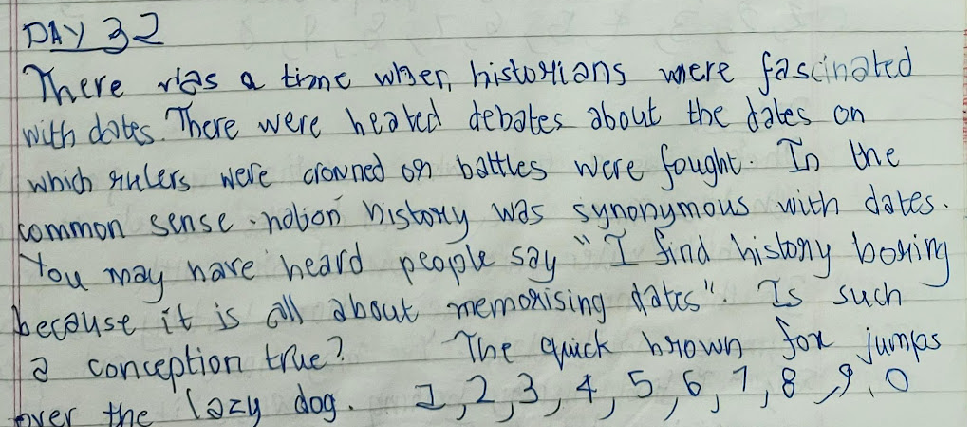 DAY 32
There was a time when historians were fascinated
with dates. There were heated debates about the dates on
which rulers were crowned or battles were fought. In the
common sense notion history was synonymous with dates.
You may have heard people say "I find history boring
because it is all about memorising dates". Is such
a conception true? The quick brown fox jumps
over the lazy dog. 1, 2, 3, 4, 5, 6, 7, 8, 9, 0